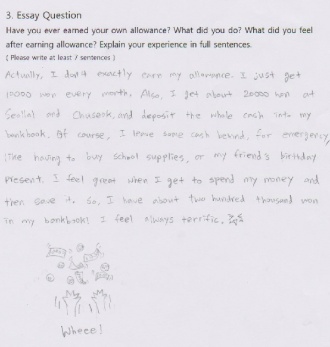 3. Essay Question
Have you ever earned your own allowance? What did you do? What did you feel
after earning allowance? Explain your experience in full sentences.
( Please write at least 7 sentences )
Actually, I don't exactly earn my allowance. I just get
10000 won every month. Also, I get about 20000 won at
Seollal and Chuseok, and deposit the whole cash into my
bankbook. Of course, I leave some cash behind, for emergency,
like having to buy school supplies, or my friend's birthday
present. I feel great when I get to spend my money and
then save it. So, I have about two hundred thousand won
in my bankbook! I feel always terrific.
Wheee!